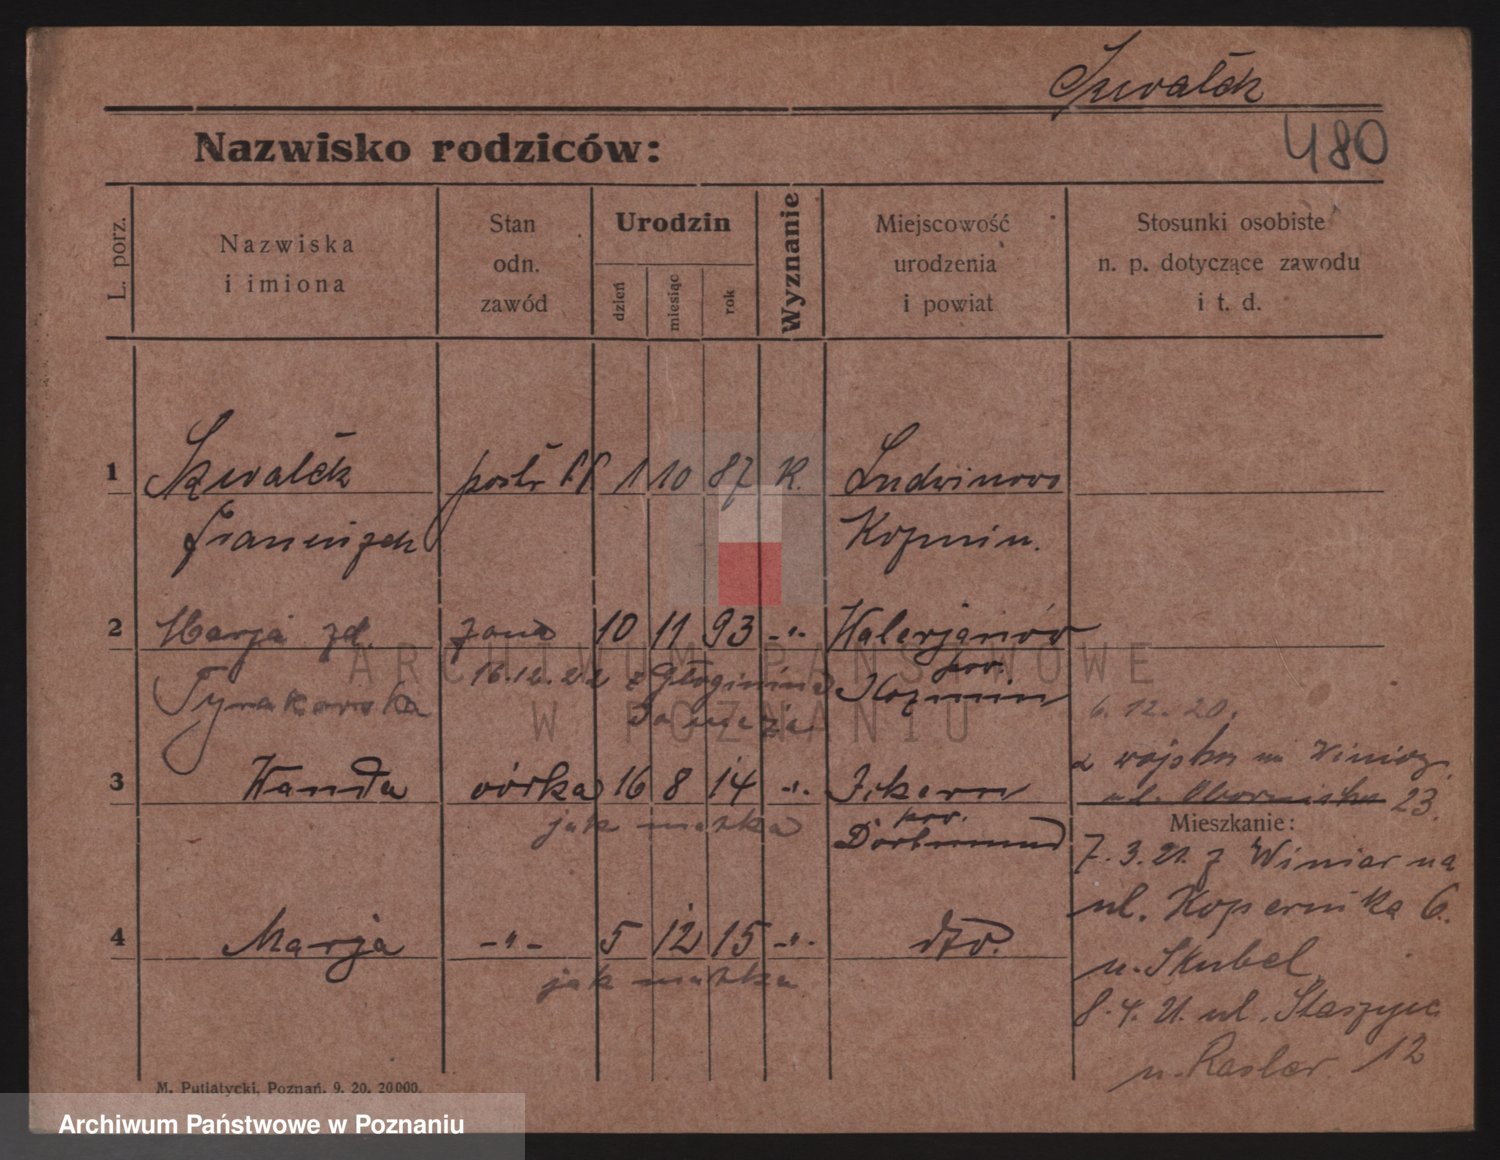 Szwałek
Nazwisko rodziców:
480
L. porz.
Nazwiska
i imiona
Stan
odn.
zawód
Urodzin
dzień
miesiąc
rok
Wyznanie
Miejscowość
urodzenia
i powiat
Stosunki osobiste
n. p. dotyczące zawodu
i t. d.
1 Szwałek 1 10 87 K. Ludwinowo
Franciszek Koźmin.
2 Marja zd. żona 10 11 93 -"- Walerjanów
pow.
16.12.22 z Koźmin
do męża
6.12.20.
3 Wanda córka 16 8 14 -"- Ickern
z wojska
23.
jak matka
pow.
Dortmund
Mieszkanie:
7.3.21 z Winiar na
ul. Kopernika 6.
4 Marja -"- 5 12 15 -"- dto.
u. Skubel
jak matka
8.4.21. ul. Staszyca
12
M. Putiatycki, Poznań. 9. 20. 20000.
ARCHIWUM PAŃSTWOWE
W POZNANIU
Archiwum Państwowe w Poznaniu